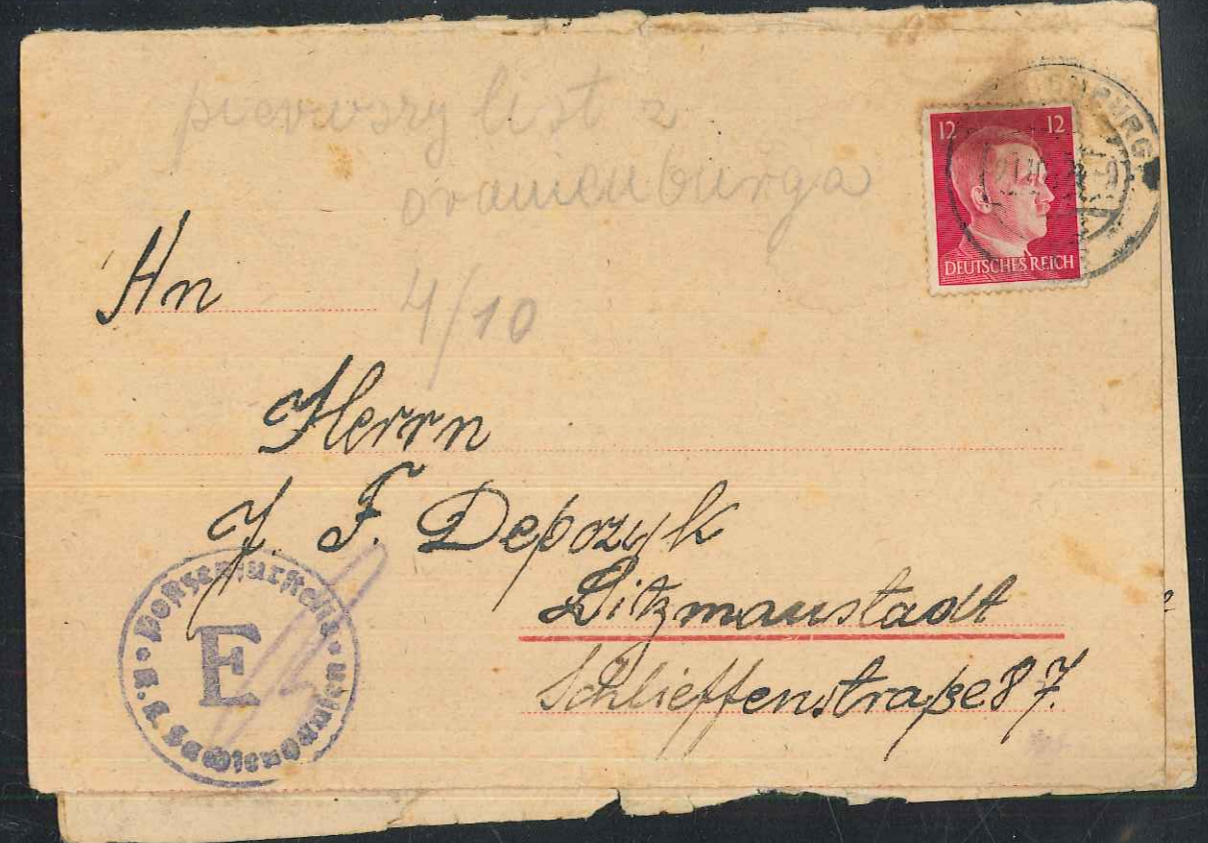 pierwszy list z
oranienburga
4/10
12 12
DEUTSCHES REICH
An
Herrn
J. F. Depczyk
Litzmannstadt
Schlieffenstraße 87.
Postzensurstelle
E
K. L. Sachsenhausen